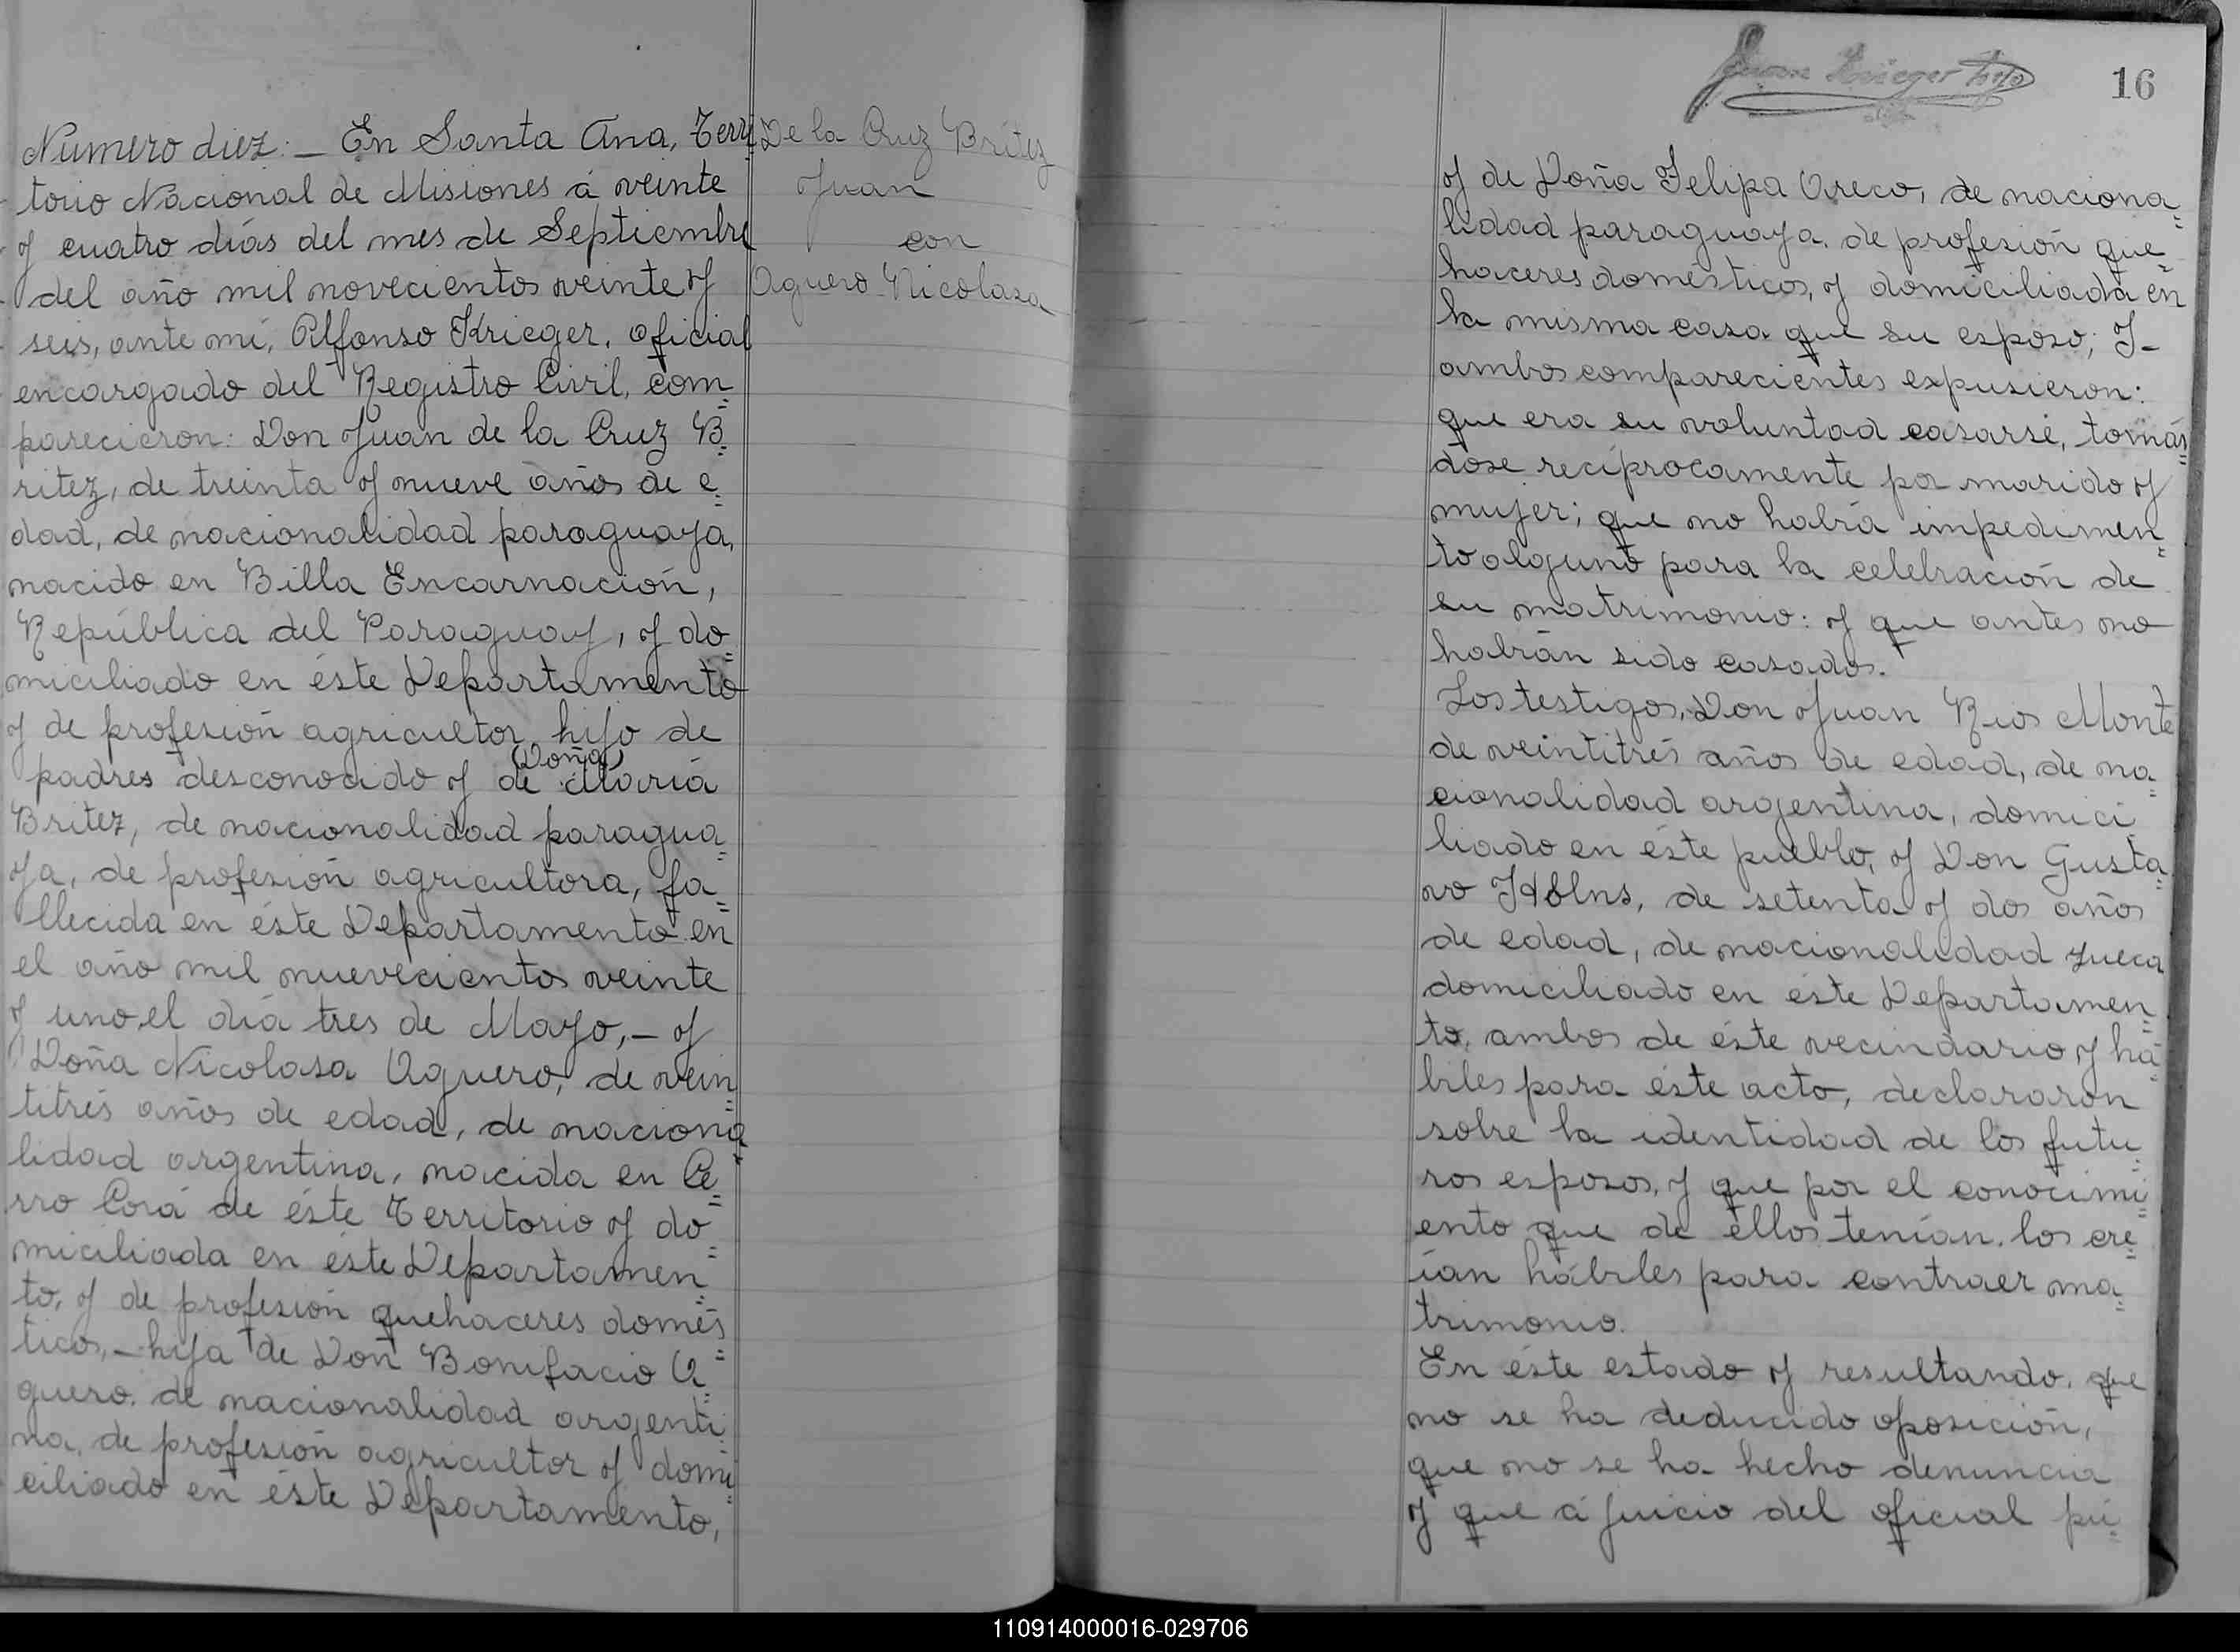 Número diez:_ En Santa Ana, Terri
torio Nacional de Misiones á veinte
y cuatro días del mes de Septiembre
del año mil novecientos veinte y
seis, ante mí, Alfonso Krieger, oficial
encargado del Registro Civil, com=
parecieron: Don Juan de la Cruz B=
ritez, de treinta y nueve años de e=
dad, de nacionalidad paraguaya,
nacido en Billa Encarnación,
República del Paraguay, y do=
miciliado en éste Departamento
y de profesión agricultor, hijo de
(Doña)
padres desconocido y de María
Britez, de nacionalidad paragua=
ya, de profesión agricultora, fa=
llecida en éste Departamento en
el año mil nuevecientos veinte
y uno, el día tres de Mayo,_ y
Doña Nicolasa Aguero, de vein=
titrés años de edad, de naciona=
lidad argentina, nacida en Ce=
rro Corá de éste Territorio y do=
miciliada en éste Departamen=
to, y de profesión quehaceres domés=
ticos,_ hija de Don Bonifacio A=
guero, de nacionalidad argenti=
na, de profesión agricultor y domi=
ciliado en éste Departamento,
De la Cruz Britez
Juan
con
Aguero Nicolasa
Krieger
16
y de Doña Felipa Areco, de naciona=
lidad paraguaya, de profesión que=
haceres domésticos, y domiciliada en
la misma casa que su esposo; Y_
ambos comparecientes expusieron:
que era su voluntad casarse, tomán=
dose recíprocamente por marido y
mujer; que no había impedimen=
to alguno para la celebración de
su matrimonio: y que antes no
habían sido casados.
Los testigos, Don Juan Rios Monte
de veintitrés años de edad, de na=
cionalidad argentina, domici=
liado en éste pueblo, y Don Gusta=
vo de setenta y dos años
de edad, de nacionalidad zueca
domiciliado en éste Departamen=
to, ambos de éste vecindario y há=
biles para éste acto, declararon
sobre la identidad de los futu=
ros esposos, y que por el conocimi=
ento que de éllos tenían, los cre=
ían hábiles para contraer ma=
trimonio.
En éste estado y resultando, que
no se ha deducido oposición,
que no se ha hecho denuncia
y que á juicio del oficial pú=
110914000016-029706